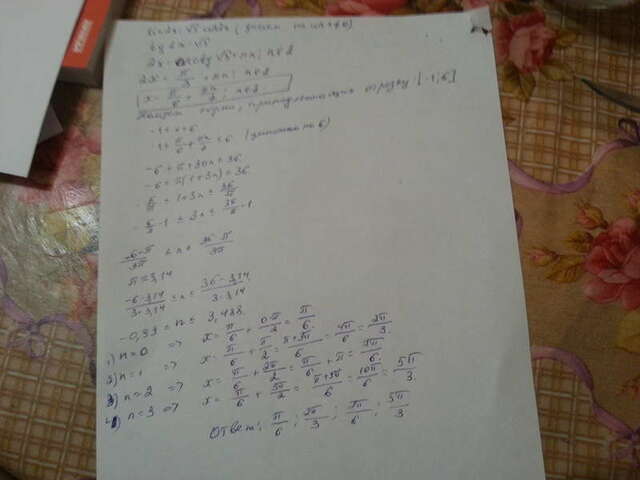 sin2x = √3 cos2x (делим на cos2x≠0)
tg 2x = √3
2x = arctg √3 + πn; n∈Z
2x = π/3 + πn; n∈Z
x = π/6 + πn/2; n∈Z
корни, принадлежащие отрезку: [-1;6]
-1 ≤ x ≤ 6
-1 ≤ π/6 + πn/2 ≤ 6 (умножим на 6)
-6 ≤ π + 3πn ≤ 36
-6 ≤ π(1+3n) ≤ 36
-6/π ≤ 1+3n ≤ 36/π
-6/π - 1 ≤ 3n ≤ 36/π - 1
(-6-π)/3π ≤ n ≤ (36-π)/3π
π = 3,14
(-6-3,14)/(3·3,14) ≤ n ≤ (36-3,14)/(3·3,14)
-0,93 ≤ n ≤ 3,488
1) n=0 => x = π/6 + 0·π/2 = π/6
2) n=1 => x = π/6 + π/2 = (π+3π)/6 = 4π/6 = 2π/3
3) n=2 => x = π/6 + 2π/2 = π/6 + π = 7π/6
4) n=3 => x = π/6 + 3π/2 = (π+9π)/6 = 10π/6 = 5π/3
Ответ: π/6; 2π/3; 7π/6; 5π/3